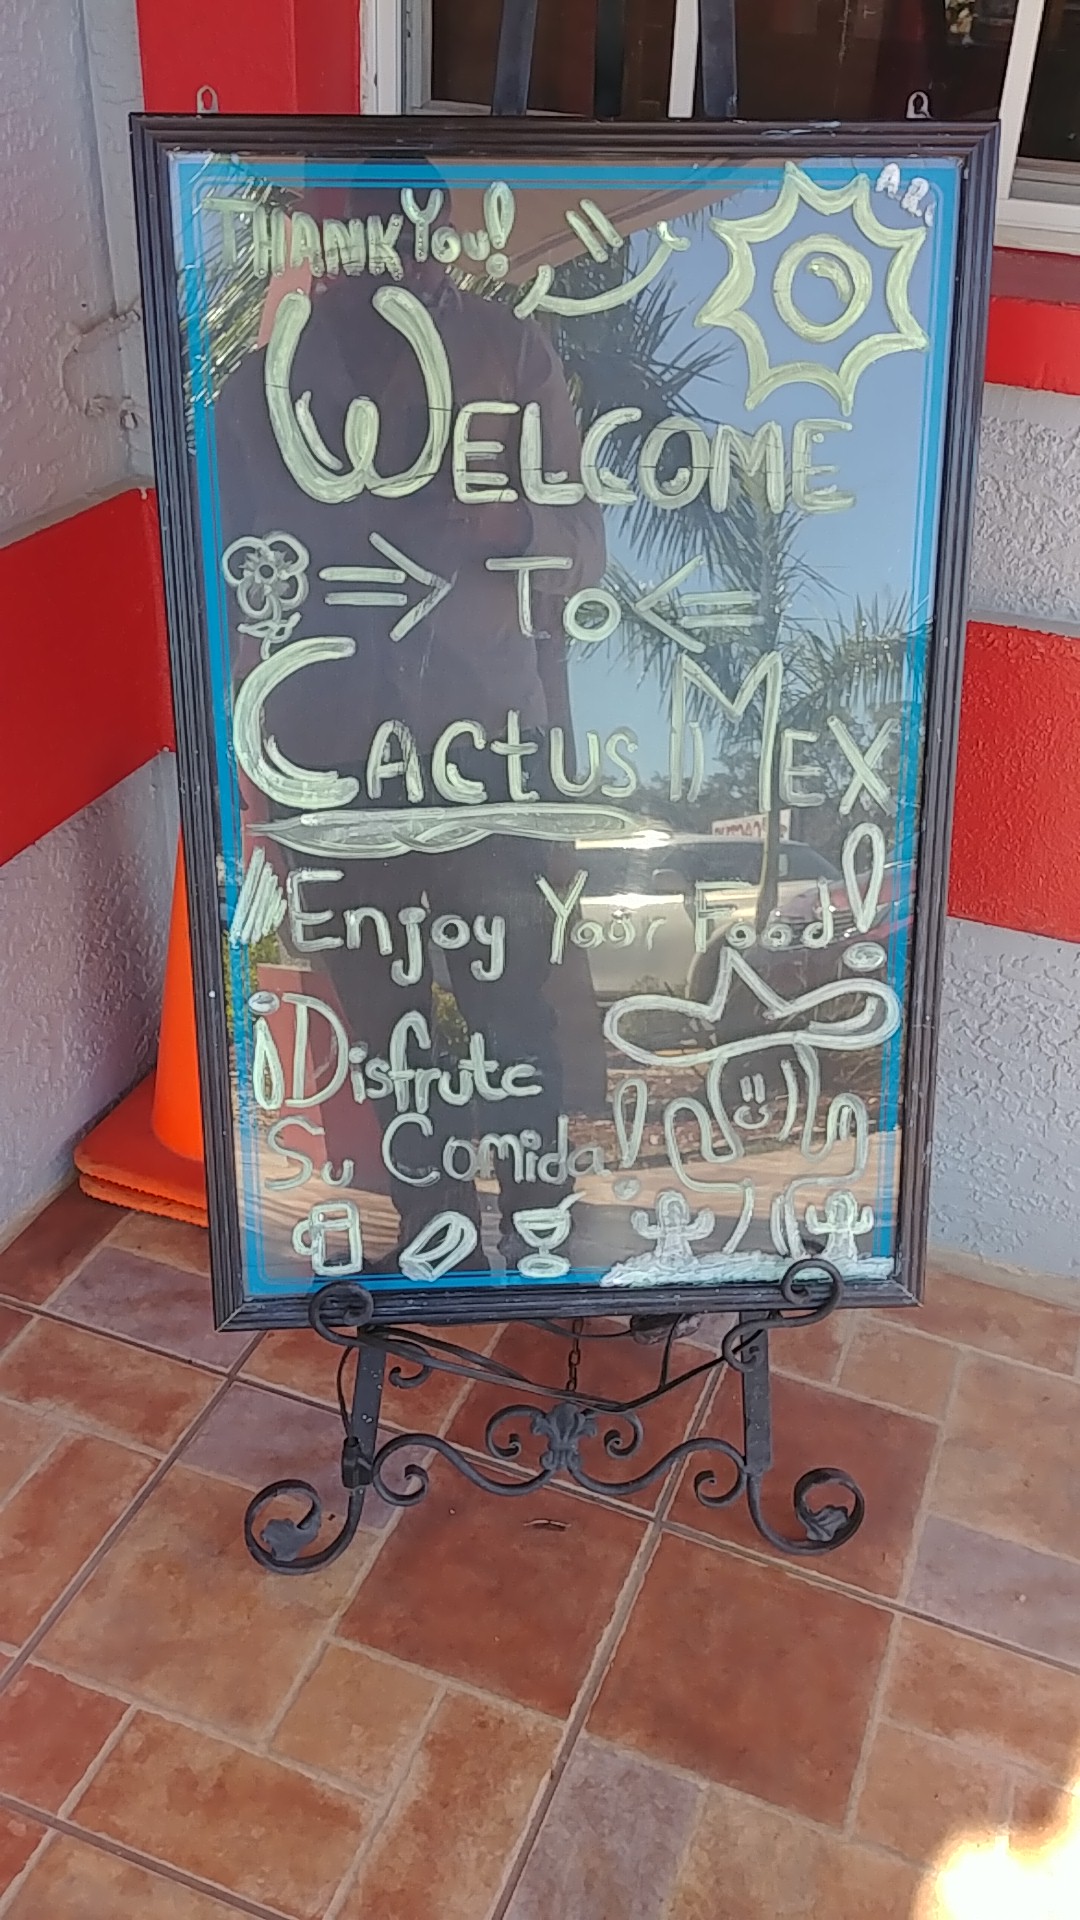 THANK YOU!
WELCOME
To
CACTUS MEX
Enjoy Your Food!
¡Disfrute
Su Comida!